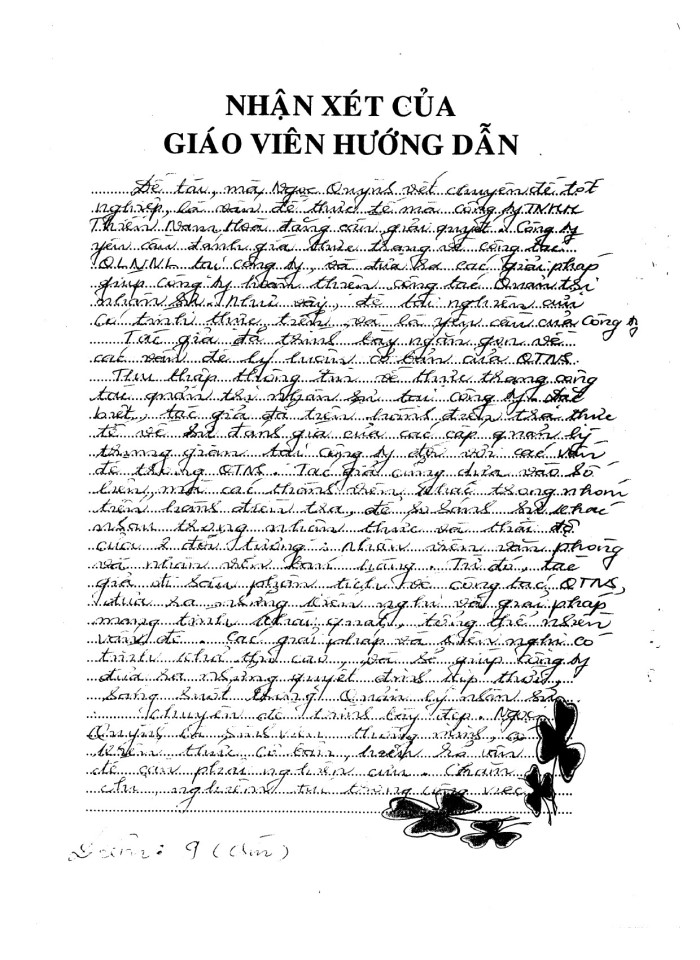 NHẬN XÉT CỦA
GIÁO VIÊN HƯỚNG DẪN
Đề tài, mà Ngọc Quỳnh viết chuyên đề tốt
nghiệp, là vấn đề thực tế mà công ty TNHH
Thiên Nam Hòa đang cần giải quyết. Công ty
yêu cầu đánh giá thực trạng về công tác
QLNNL tại công ty, và đưa ra các giải pháp
giúp công ty hoàn thiện công tác Quản trị
nhân sự. Như vậy, đề tài nghiên cứu
có tính thực tiễn, và là yêu cầu của công ty
Tác giả đã trình bày ngắn gọn về
các vấn đề lý luận cơ bản của QTNS.
Thu thập thông tin về thực trạng công
tác quản trị nhân sự tại công ty. Đặc
biệt, tác giả đã tiến hành điều tra thực
tế về sự đánh giá của các cấp quản lý
trung gian tại công ty đối với các vấn
đề trong QTNS. Tác giả cũng dựa vào số
liệu, mà các thành viên khác trong nhóm
tiến hành điều tra, để so sánh sự khác
nhau trong nhận thức và thái độ
của 2 đối tượng: nhân viên văn phòng
và nhân viên bán hàng. Từ đó, tác
giả đi sâu phân tích về công tác QTNS,
đưa ra những kiến nghị và giải pháp
mang tính khái quát, tổng thể nhiều
vấn đề. Các giải pháp và kiến nghị có
tính khả thi cao, và sẽ giúp công ty
đưa ra những quyết định kịp thời,
sáng suốt trong Quản lý nhân sự.
Chuyên đề trình bày đẹp. Ngọc
Quỳnh là sinh viên thông minh, có
kiến thức cơ bản, hiểu rõ vấn
đề cần phải nghiên cứu. Chăm
chỉ, nghiêm túc trong công việc
Điểm: 9 (chín)